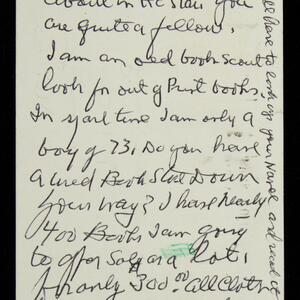 about in the Star you
are quite a fellow,
I am an old book scout
look for out of Print books,
In spare time I am only a
boy of 73. Do you have
a used Book Store Down
your way? I have nearly
400 Books I am going
to offer Sale as a Lot,
for only $300.00 All Cloth
have to look up your Navel and read it